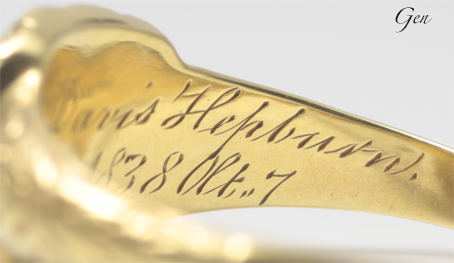 Gen
Davis Hepburn.
1838 Olt.. 7